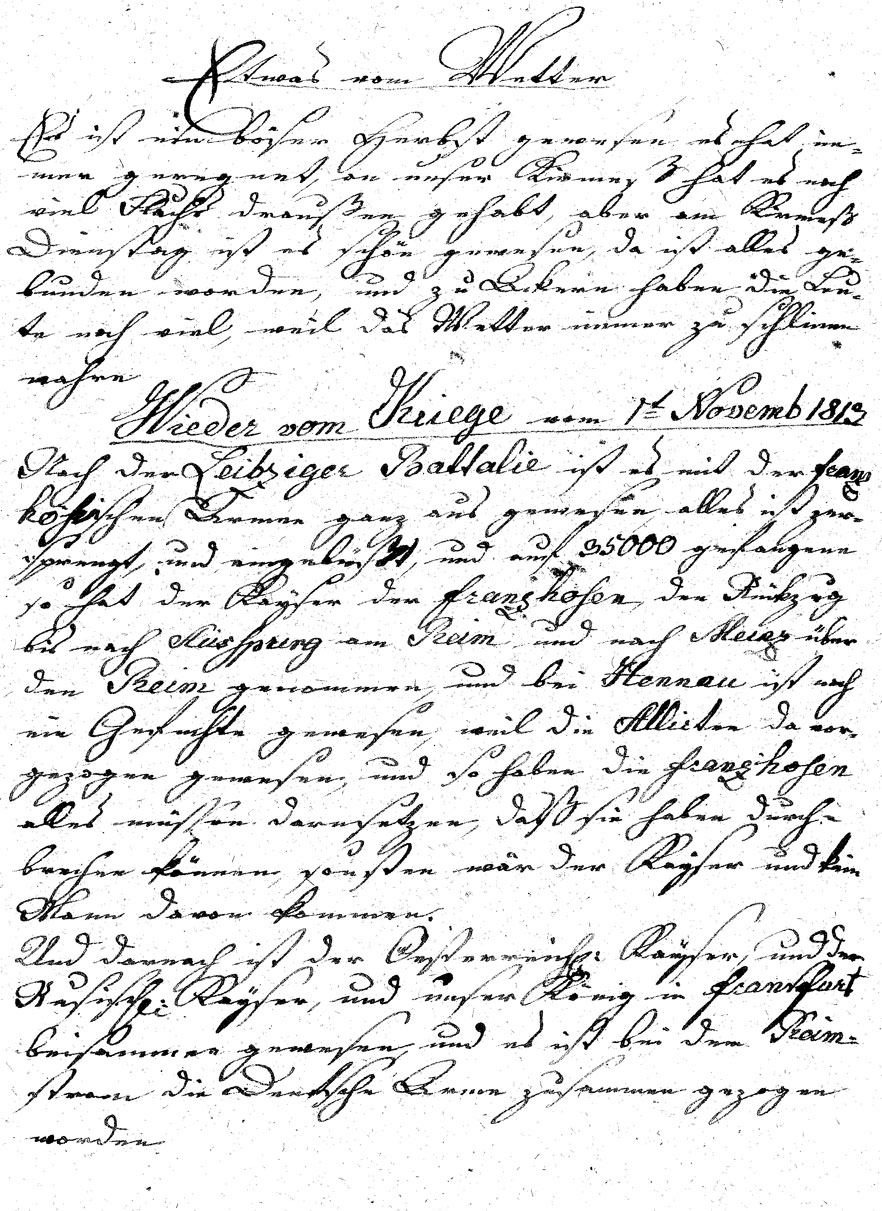 Etwas vom Wetter
Es ist ein böser Herbst gewesen es hat im-
mer geregnet, an unser Kirmeß hat es noch
viel Flachs draußen gehabt, aber am Kirmeß
Dienstag ist es schön gewesen, da ist alles ge-
bunden worden, und zu Ackern haben die Leu-
te noch viel, weil das Wetter immer zu schlimm
wahre
Wieder vom Kriege vom 1t Novemb 1813
Nach der Leibziger Battalie ist es mit der fran
kösischen Armee ganz aus gewesen alles ist zer-
sprengt, und eingebüßt, und auf 35000 gefangene
so hat der Kayser der franzhosen, den Rückzug
bis nach am Reim und nach Meinz über
den Reim genommen, und bei Hennau ist noch
ein Gefechte gewesen, weil die Alliirten da vor-
gezogen gewesen, und so haben die franzhosen
alles müssen daransetzen, daß sie haben durch-
brechen können, sonsten wär der Kayser und kein
Mann davon kommen.
Und darnach ist der Oesterreich: Kayser, und der
Rusisch: Kayser, und unser König in frankfurt
beisammen gewesen, und es ist bei dem Reim-
strom die Deutsche Armee zusammen gezogen
worden